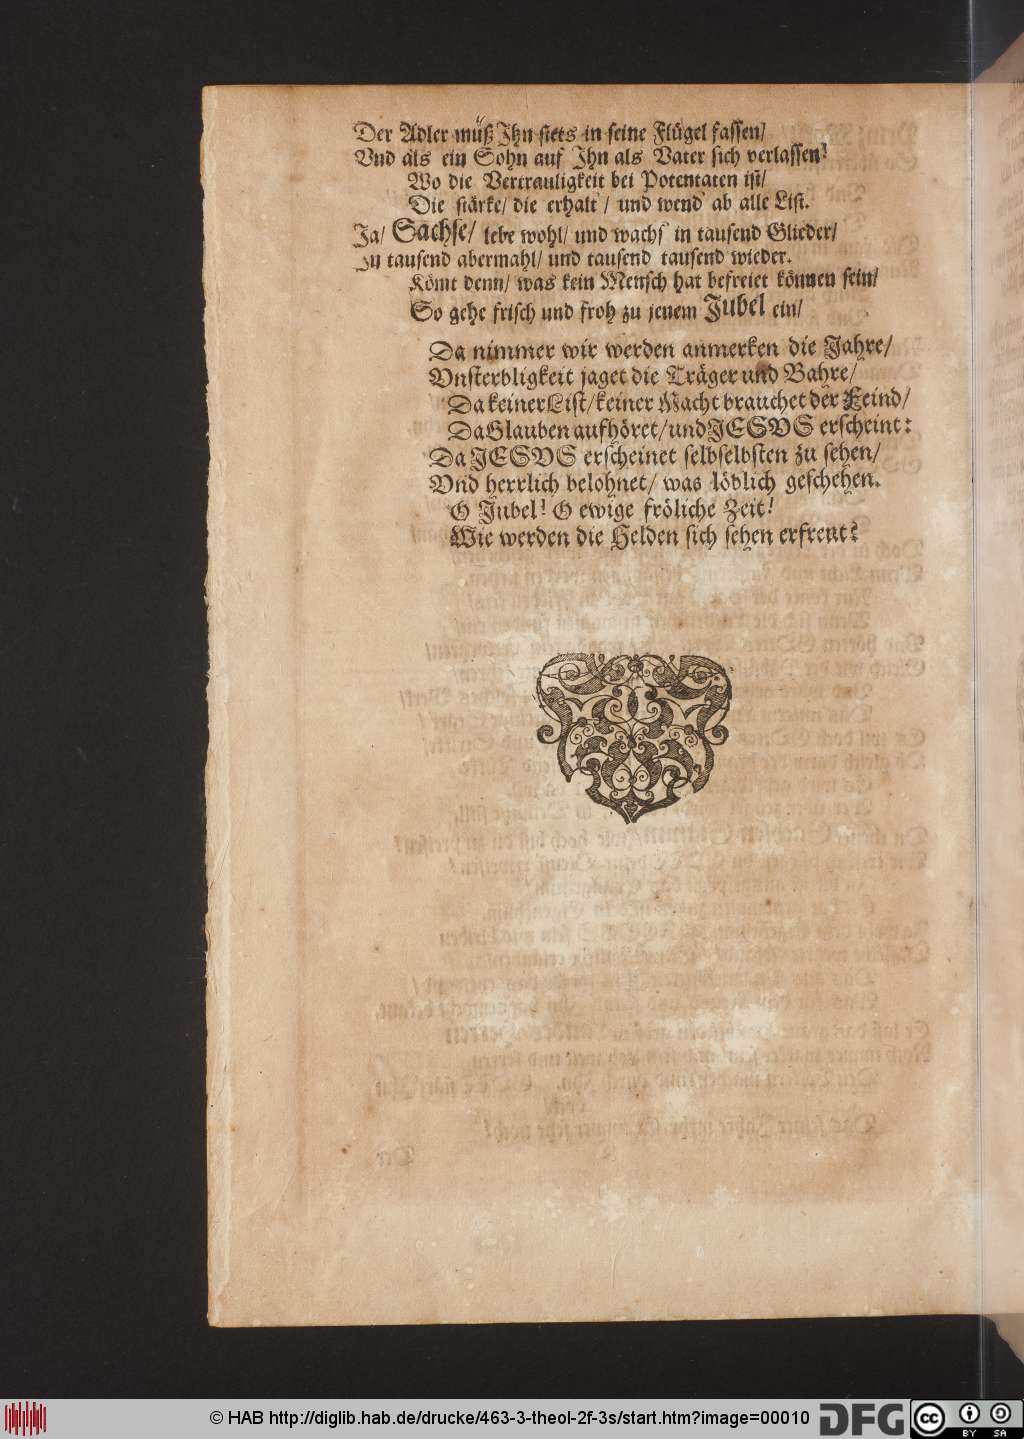 Der Adler müß Jhn stets in seine Flügel fassen/
Vnd als ein Sohn auf Jhn als Vater sich verlassen!
Wo die Vertrauligkeit bei Potentaten ist/
Die stärke/ die erhalt'/ und wend' ab alle List.
Ja/ Sachse/ lebe wohl/ und wachs' in tausend Glieder/
Zu tausend abermahl/ und tausend tausend wieder.
Kömt denn/ was kein Mensch hat befreiet können sein/
So gehe frisch und froh zu jenem Jubel ein/
Da nimmer wir werden anmerken die Jahre/
Vnsterbligkeit jaget die Träger und Bahre/
Da keiner List/ keiner Macht brauchet der Feind/
Da Glauben aufhöret/ und JESVS erscheint:
Da JESVS erscheinet selbselbsten zu sehen/
Vnd herrlich belohnet/ was löblich geschehen.
O Jubel! O ewige fröliche Zeit!
Wie werden die Helden sich sehen erfreut?
© HAB http://diglib.hab.de/drucke/463-3-theol-2f-3s/start.htm?image=00010
DFG
cc
BY SA